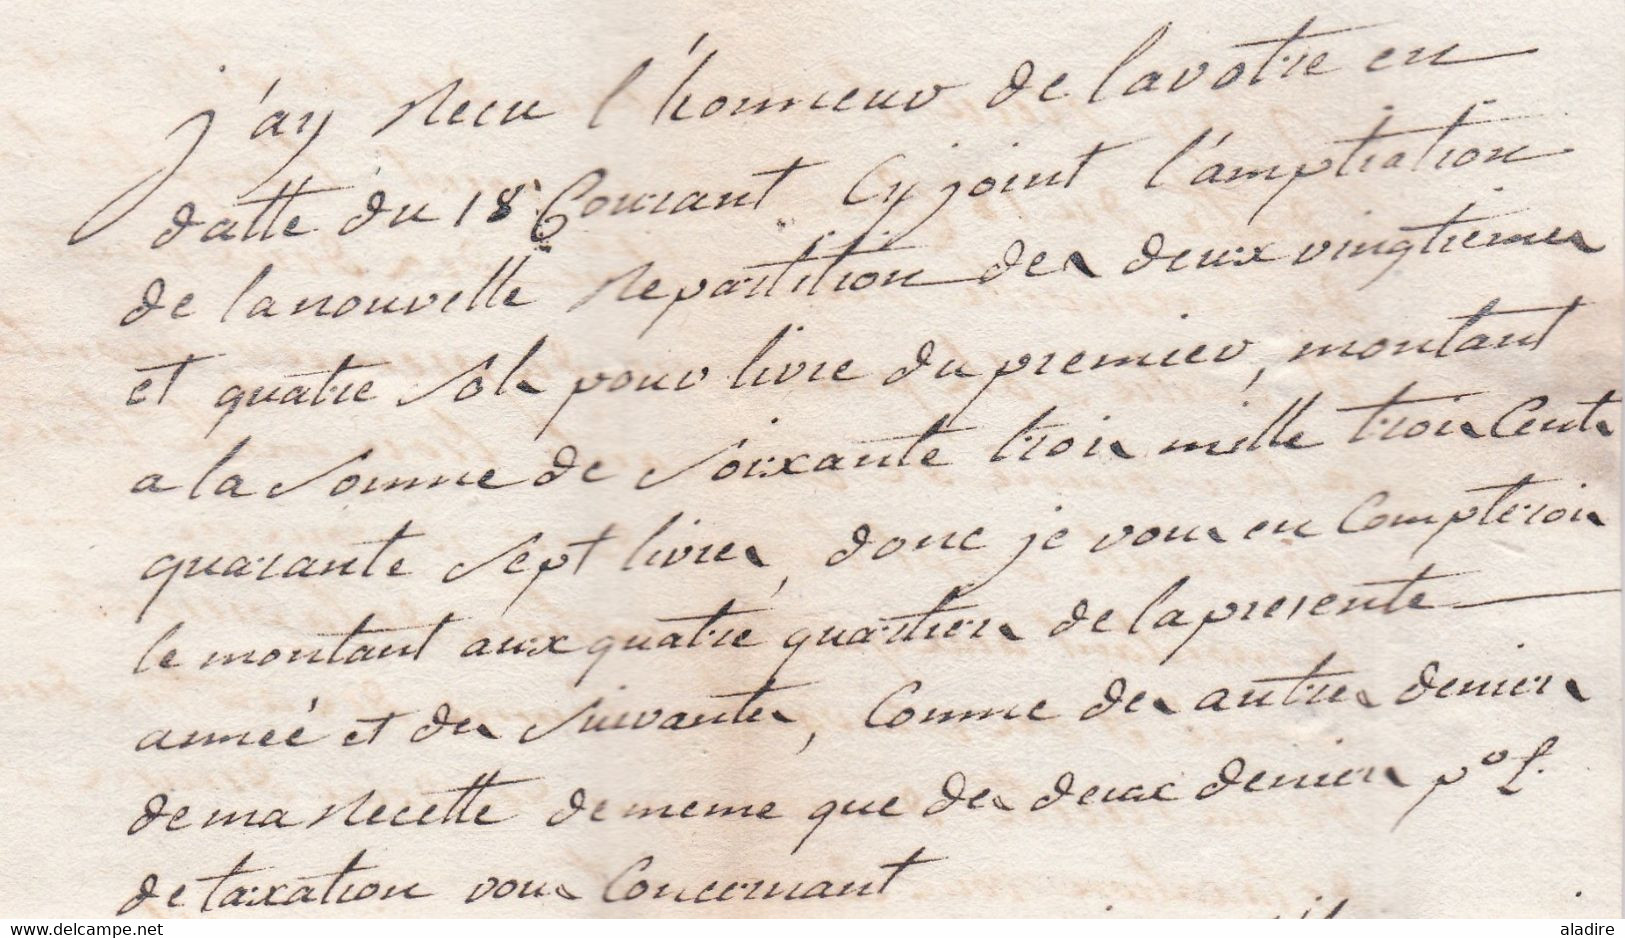 j'ay recu l'honneur de la votre en
datte du 18 Courant Cy joint l'ampliation
de la nouvelle repartition des deux vingtiemes
et quatre sols pour livre du premier, montant
a la somme de soixante trois mille trois Cents
quarante sept livres, donc je vous en Compterois
le montant aux quatre quartiers de la presente
année et des suivantes, Comme des autres deniers
de ma recette de meme que des deux deniers po L.
de taxation vous Concernant
delcampe.net
aladire